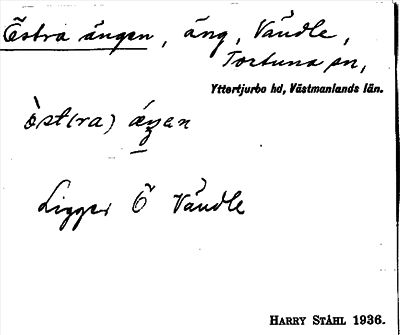 Östra ängen, äng, Vändle,
Tortuna sn,
Yttertjurbo hd, Västmanlands län.
òst(ra) áŋen
Ligger Ö Vändle
HARRY STÅHL 1936.